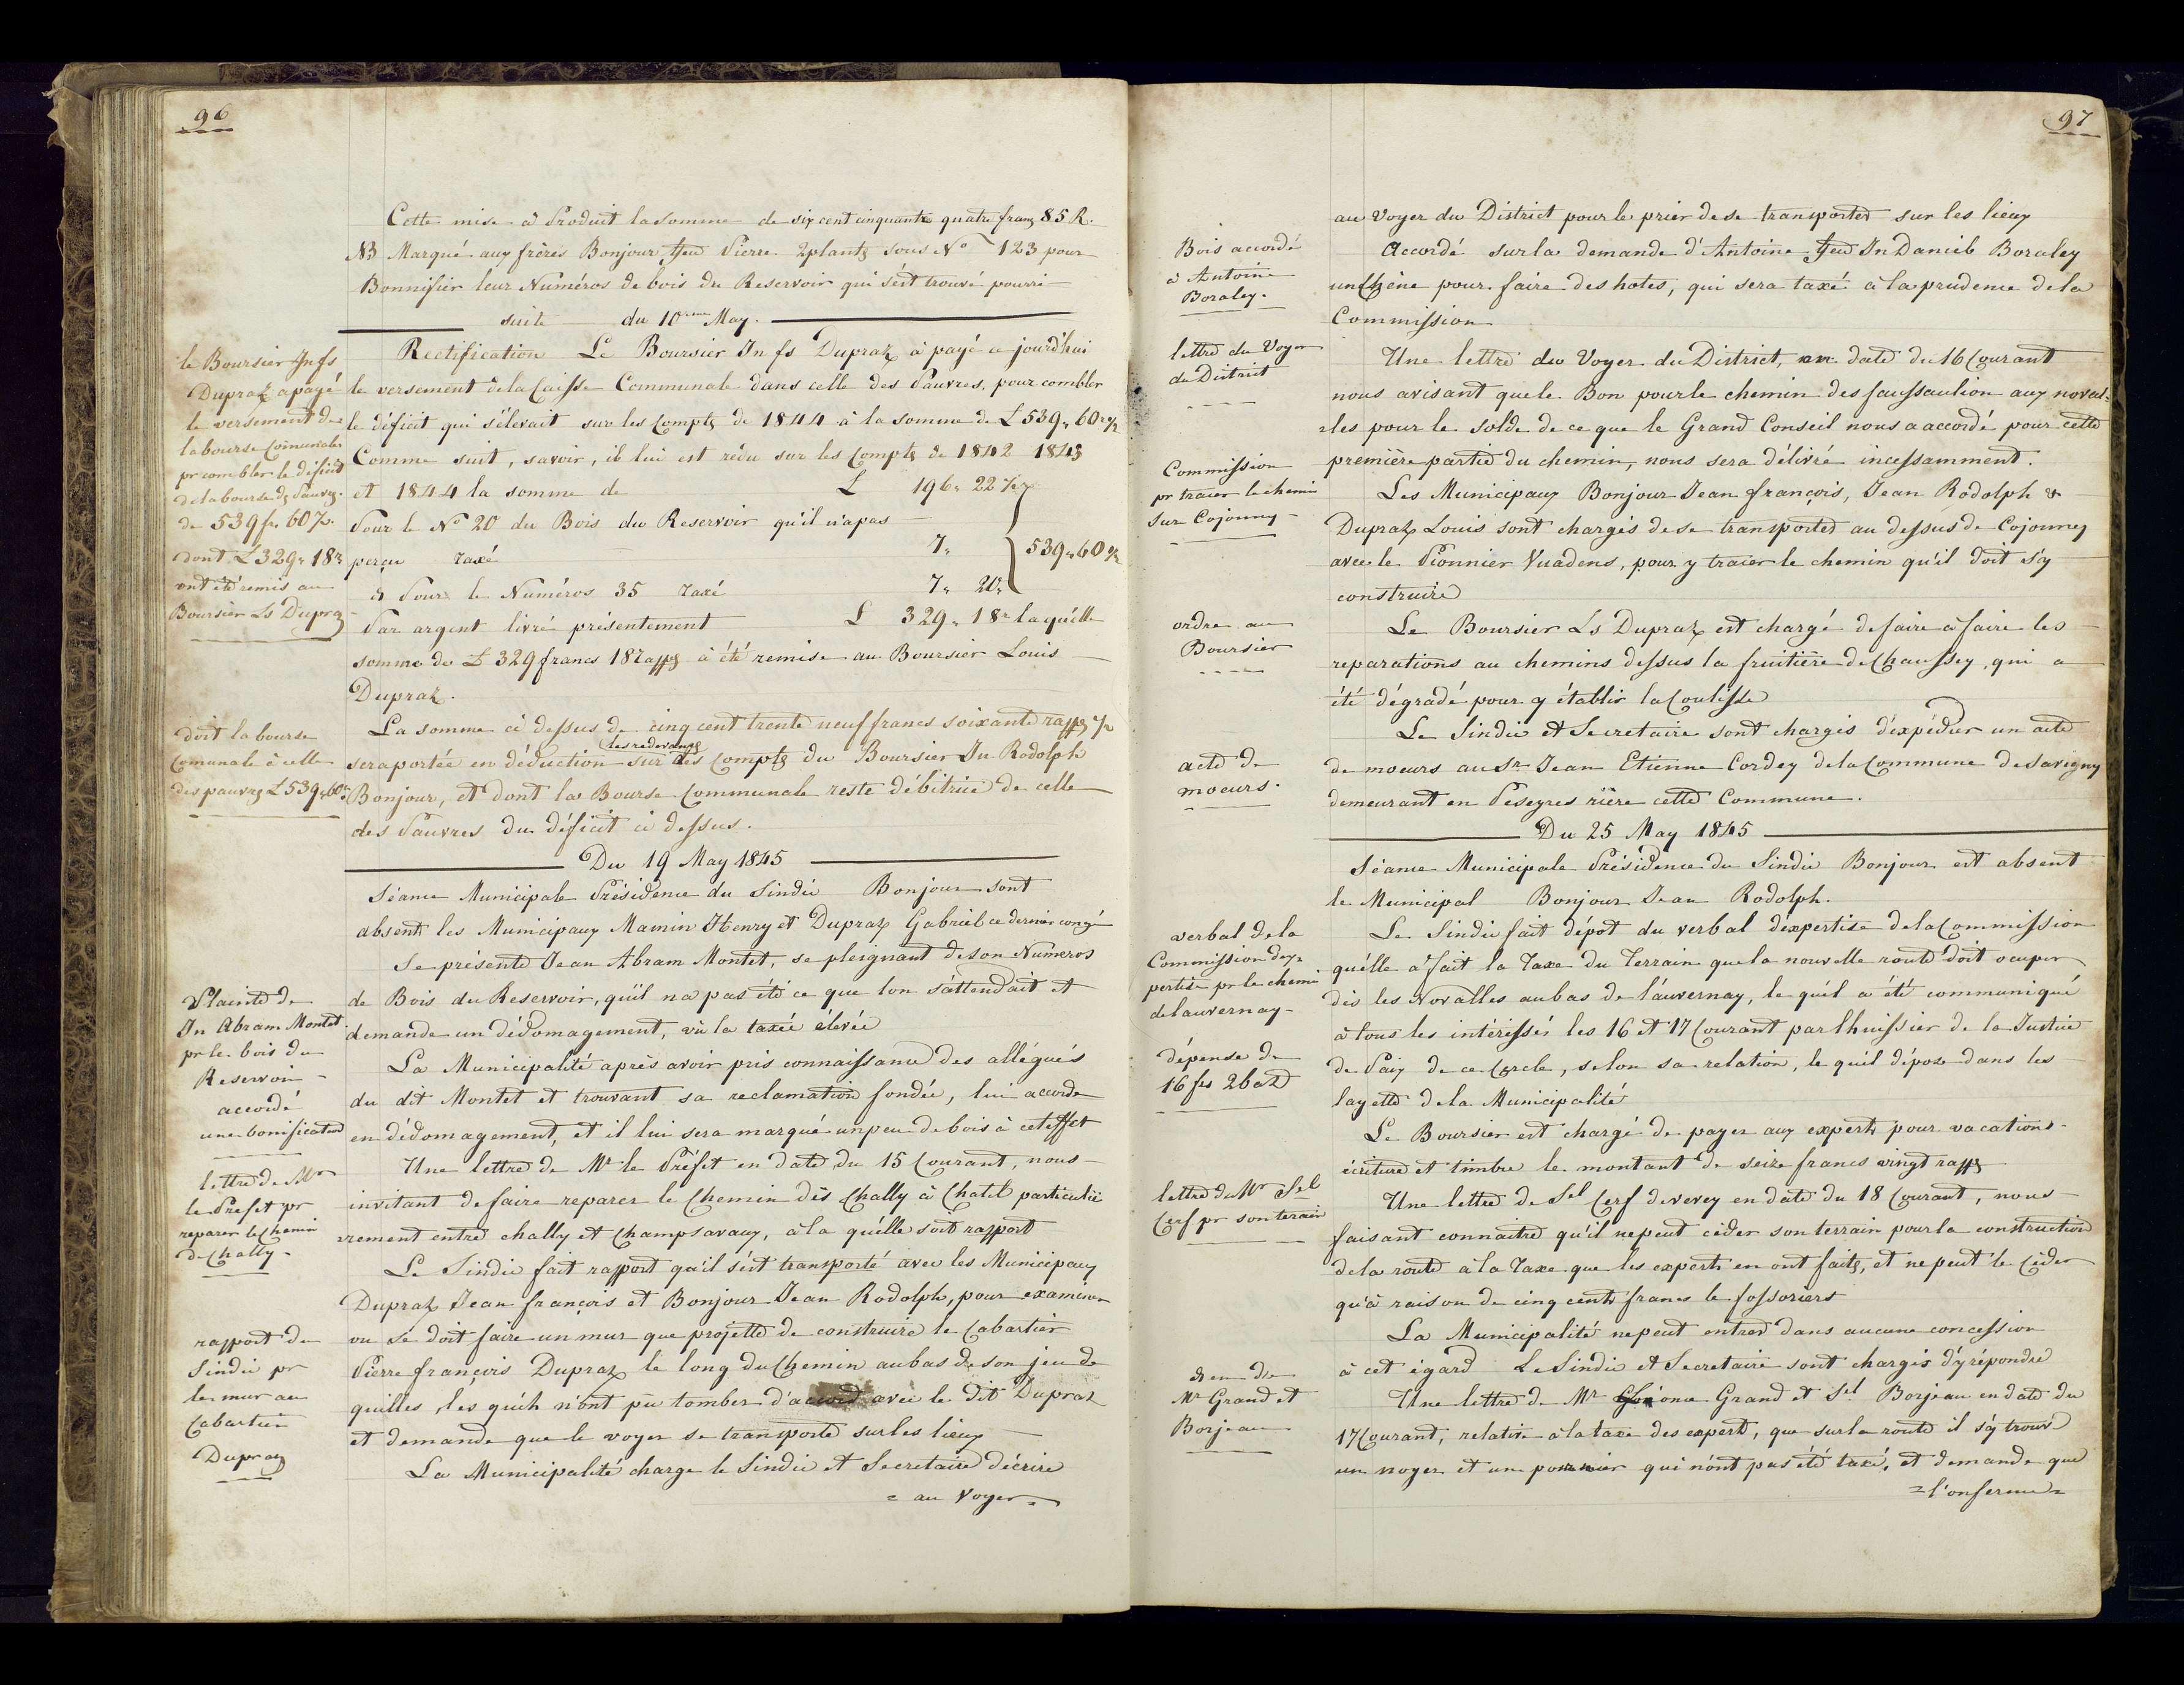 96
Cette mise à Produit la somme de six cent cinquante quatre francs 85 R.
NB Marqué aux frères Bonjour feu Pierre 2 plants sous N° 123 pour
Bonnifier leur Numéros de bois du Reservoir qui s'est trouvé pourri
suite du 10eme May.
le Boursier Jn fs
Dupraz a payé
le versement de
la bourse Communale
pr combler le déficit
de la bourse ds Pauvres.
de 539 fr. 60 ½.
dont £ 329 „ 18 r
ont été remis au
Boursier Ls Dupraz
Rectification Le Boursier Jn fs Dupraz à payé ce jourd'hui
le versement de la Caisse Communale dans celle des Pauvres, pour combler
le déficit qui s'élevait sur les Compts de 1844 à la somme de £ 539 „ 60 r ½
Comme suit, savoir, il lui est rédu sur les Compts de 1842 1843
et 1844 la somme de £ 196 „ 22 ½
Pour le N° 20 du Bois du Reservoir qu'il n'a pas
perçu taxé 7 „
539 „ 60 ½
& Pour le Numéros 35 taxé 7 „ 20 „
Par argent livré présentement £ 329 „ 18 „ laquélle
somme de £ 329 francs 18 rapps à été remise au Boursier Louis
Dupraz.
doit la bourse
Comunale à celle
des pauvres £ 539 „ 60
La somme ci dessus de cinq cent trente neuf francs soixante rapps ½
les redevances
sera portée en déduction sur des Compts du Boursier Jn Rodolph
Bonjour, et dont la Bourse Communale reste débitrice de celle
des Pauvres du déficit ci dessus.
Du 19 May 1845
Séance Municipale Présidence du Sindic Bonjour sont
absents les Municipaux Mamin Henry et Dupraz Gabriel ce dernier congé
Plainte de
Jn Abram Montet
pr le bois du
Reservoir
accordé
une bonification
Se présente Jean Abram Montet, se pleignant de son Numeros
de Bois du Reservoir, qu'il na pas été ce que lon s'attendait et
demande un dédomagement, vù la taxée élevée
La Municipalité après avoir pris connaissance des allégués
du dit Montet et trouvant sa reclamation fondée, lui accorde
en dédomagement, et il lui sera marqué un peu de bois à cet effet
lettre de Mr
le Prefet pr
reparer le Chemin
de Chally.
Une lettre de Mr le Préfet en date du 15 Courant, nous
invitant de faire reparer le Chemin dès Chally à Chatel particuliè
rement entre chally et Champsavaux, à la quélle soit rapport
rapport du
Sindic pr
le mur au
Cabartier
Dupraz
Le Sindic fait rapport qu'il s'est transporté avec les Municipaux
Dupraz Jean françois et Bonjour Jean Rodolph, pour examiner
ou se doit faire un mur que projette de construire le Cabartier
Pierre françois Dupraz le long du Chemin au bas de son jeu de
quilles, les quéls n'ont pu tomber d'accord avec le dit Dupraz
et demande que le voyer se transporte sur les lieux
La Municipalité charge le Sindic et Secretaire décrire
= au Voyer =
97
au Voyer du District pour le prier de se transporter sur les lieux
Bois accordé
à Antoine
Boraley.
Accordé sur la demande d'Antoine feu Jn Daniel Boraley
un Chêne pour faire des hotes, qui sera taxé à la prudence de la
Commission
lettre du Voyer
du District
Une lettre du Voyer du District, en date du 16 Courant
nous avisant que le Bon pour le chemin des faussaulion aux noval-
-les pour le solde de ce que le Grand Conseil nous a accordé pour cette
première partie du chemin, nous sera délivré incessamment.
Commission
pr tracer le chemin
sur Cojonney
Les Municipaux Bonjour Jean françois, Jean Rodolph &
Dupraz Louis sont chargés de se transporter au dessus de Cojonney
avec le Pionnier Vuadens, pour y tracer le chemin qu'il doit s'y
construire
ordre au
Boursier
Le Boursier Ls Dupraz est chargé de faire à faire les
reparations au chemins dessus la fruitière de Chaussey, qui a
été dégradé pour y établir la Coulisse
acte de
moeurs.
Le Sindic et Secretaire sont chargés d'expédier un acte
de moeurs au Sr Jean Etienne Cordey de la Commune de Savigny
demeurant en Peseyres rière cette Commune.
Du 25 May 1845
Séance Municipale Présidence du Sindic Bonjour est absent
le Municipal Bonjour Jean Rodolph.
verbal de la
Commission dex-
pertise pr le chemin
de lauvernay
dépense de
16 frs 2 batz
Le Sindic fait dépot du verbal d'expertise de la Commission
qu'élle à fait la Taxe du Terrain que la nouvelle route doit ocuper
dès les Novalles au bas de l'auvernay, le quél a été communiqué
à tous les intéressés les 16 et 17 Courant par lhuissier de la Justice
de Paix de ce Cercle, selon sa relation, le quél dépose dans les
layette de la Municipalité
Le Boursier est chargé de payer aux experts pour vacations
écriture et timbre le montant de seize francs vingt rapps
lettre de Mr Sel
Cerf pr son terain
Une lettre de Sel Cerf de vevey en date du 18 Courant, nous
faisant connaitre qu'il ne peut céder son terrain pour la construction
de la route à la Taxe que les experts en ont faits, et ne peut le Céder
qu'à raison de cinq cents francs le fossoriers
La Municipalité ne peut entrer dans aucune concession
à cet égard Le Sindic et Secretaire sont chargés d'y répondre
de
Mr Grand et
Borjeau
Une lettre de Mr Grand et Sel Borjeau en date du
17 Courant, relative à la taxe des experts, que sur la route il s'y trouve
un noyer et un pommier qui n'ont pas été taxé, et demande que
= l'on ferme =